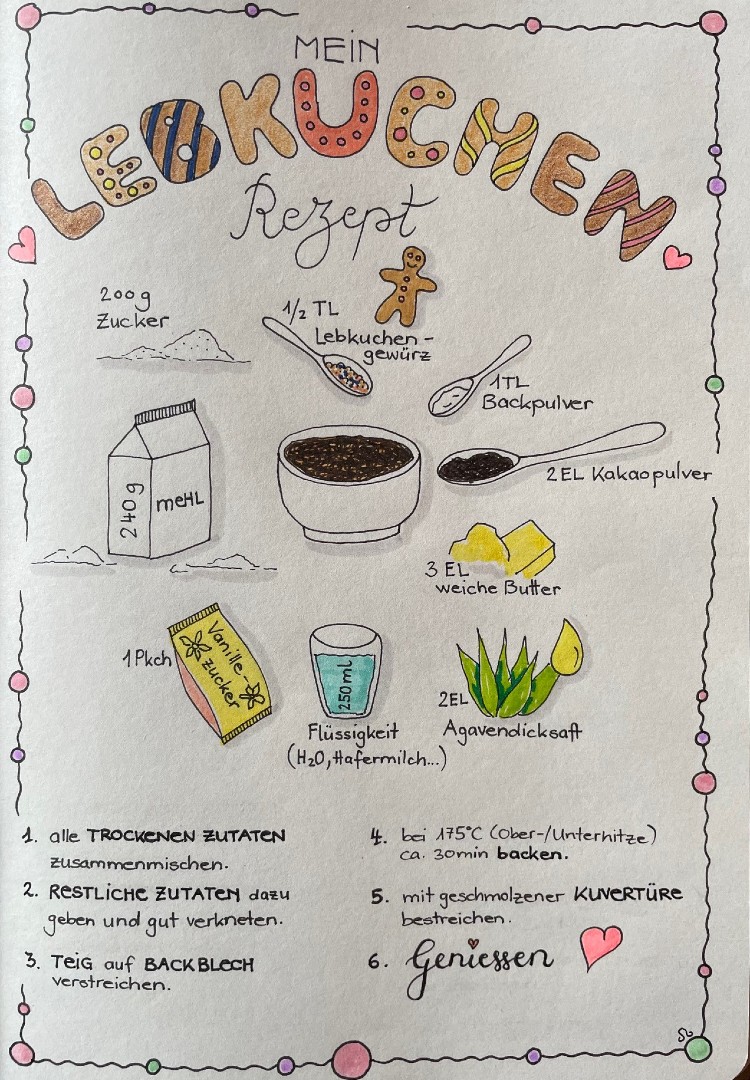 MEIN
LEBKUCHEN
Rezept
200g
Zucker
1/2 TL
Lebkuchen-
gewürz
1TL
Backpulver
240g
meHL
2EL Kakaopulver
3 EL
weiche Butter
1Pkch
Vanille-
zucker
250ml
Flüssigkeit
(H2O, Hafermilch...)
2EL
Agavendicksaft
1. alle TROCKENEN ZUTATEN
zusammenmischen.
2. RESTLICHE ZUTATEN dazu
geben und gut verkneten.
3. TEiG auf BACKBLECH
verstreichen.
4. bei 175°C (Ober-/Unterhitze)
ca. 30min backen.
5. mit geschmolzener KUVERTÜRE
bestreichen.
6. Geniessen